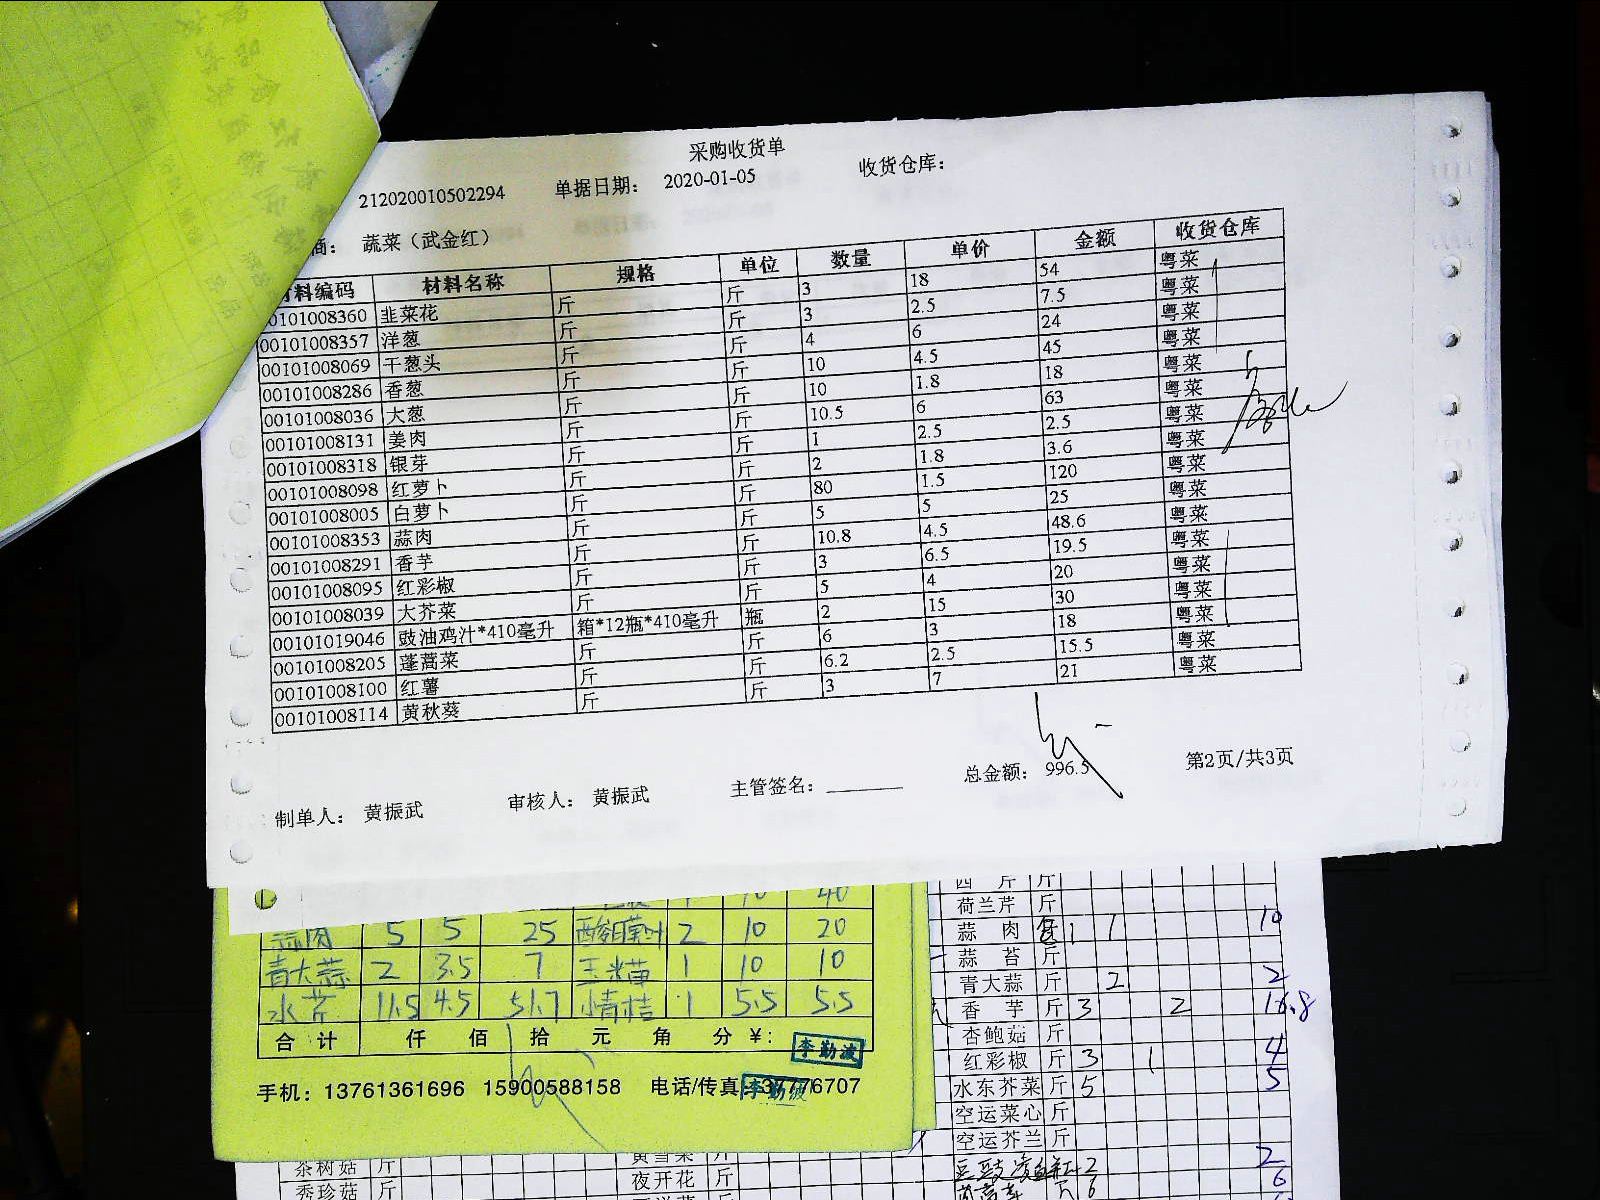 采购收货单
212020010502294 单据日期： 2020-01-05 收货仓库：
商： 蔬菜（武金红）
料编码 材料名称 规格 单位 数量 单价 金额 收货仓库
00101008360 韭菜花 斤 斤 3 18 54 粤菜
00101008357 洋葱 斤 斤 3 2.5 7.5 粤菜
00101008069 干葱头 斤 斤 4 6 24 粤菜
00101008286 香葱 斤 斤 10 4.5 45 粤菜
00101008036 大葱 斤 斤 10 1.8 18 粤菜
00101008131 姜肉 斤 斤 10.5 6 63 粤菜
00101008318 银芽 斤 斤 1 2.5 2.5 粤菜
00101008098 红萝卜 斤 斤 2 1.8 3.6 粤菜
00101008005 白萝卜 斤 斤 80 1.5 120 粤菜
00101008353 蒜肉 斤 斤 5 5 25 粤菜
00101008291 香芋 斤 斤 10.8 4.5 48.6 粤菜
00101008095 红彩椒 斤 斤 3 6.5 19.5 粤菜
00101008039 大芥菜 斤 斤 5 4 20 粤菜
00101019046 豉油鸡汁*410毫升 箱*12瓶*410毫升 瓶 2 15 30 粤菜
00101008205 蓬蒿菜 斤 斤 6 3 18 粤菜
00101008100 红薯 斤 斤 6.2 2.5 15.5 粤菜
00101008114 黄秋葵 斤 斤 3 7 21 粤菜
制单人： 黄振武 审核人： 黄振武 主管签名： 总金额： 996.5 第2页/共3页
40
蒜肉 5 5 25 2 10 20
青大蒜 2 3.5 7 玉米苗 1 10 10
水芹 11.5 4.5 51.7 情桔 1 5.5 5.5
合计 仟 佰 拾 元 角 分 ￥:
李勤波
手机：13761361696 15900588158 电话/传真：37776707
李勤波
西芹 斤
荷兰芹 斤
蒜肉 1 1 10
蒜苔 斤
青大蒜 斤 2 2
香芋 斤 3 2 16.8
杏鲍菇 斤
红彩椒 斤 3 1 4
水东芥菜 斤 5 5
空运菜心 斤
空运芥兰 斤
2 2
6 6
茶树菇 斤
秀珍菇 斤
夜开花 斤